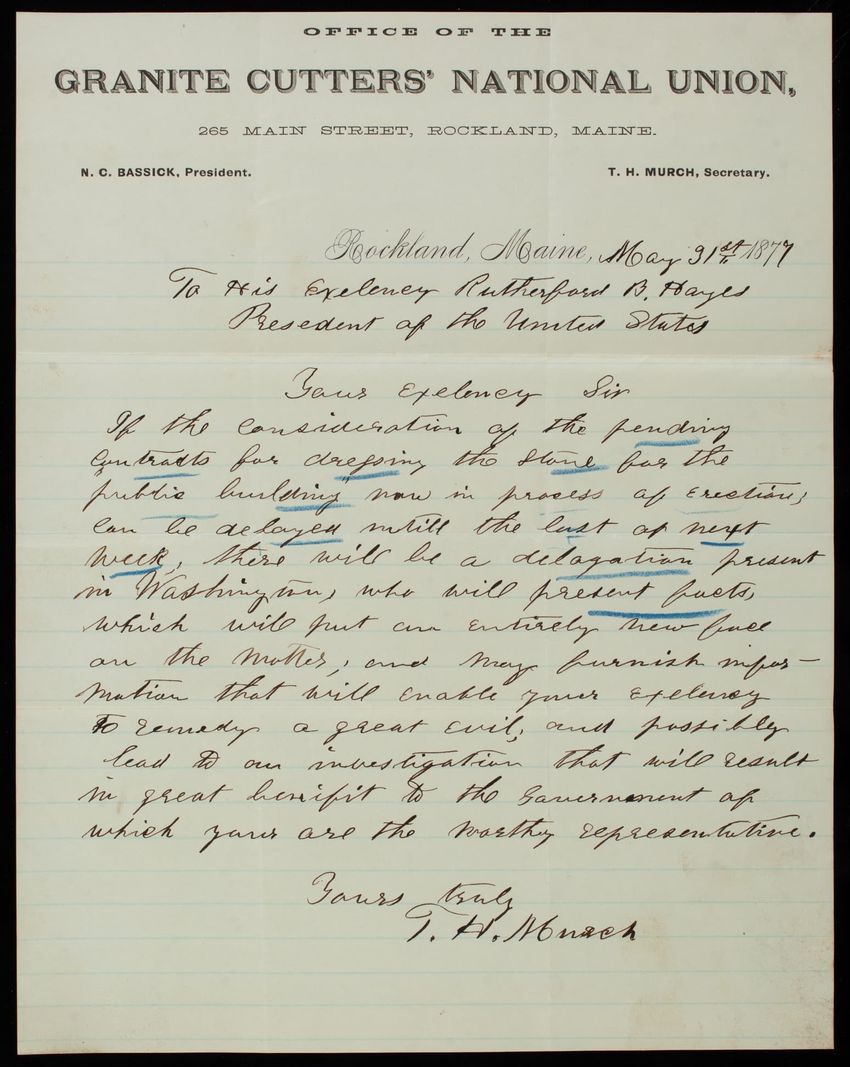 OFFICE OF THE
GRANITE CUTTERS' NATIONAL UNION,
265 MAIN STREET, ROCKLAND, MAINE.
N. C. BASSICK, President. T. H. MURCH, Secretary.
Rockland, Maine, May 31st 1877
To His Exelency Rutherford B. Hayes
Presedent of the United States
Your Exelency Sir
If the consideration of the pending
contracts for dregsing the stone for the
public building now in process of erection,
can be delayed untill the last of next
week, there will be a delagation present
in Washington, who will present facts,
which will put an entirely new face
on the matter, and may furnish infor-
mation that will enable your Exelency
to remedy a great evil, and possibly
lead to an investigation that will result
in great benifit to the Government of
which your are the worthy representative.
Yours truly
T. H. Murch